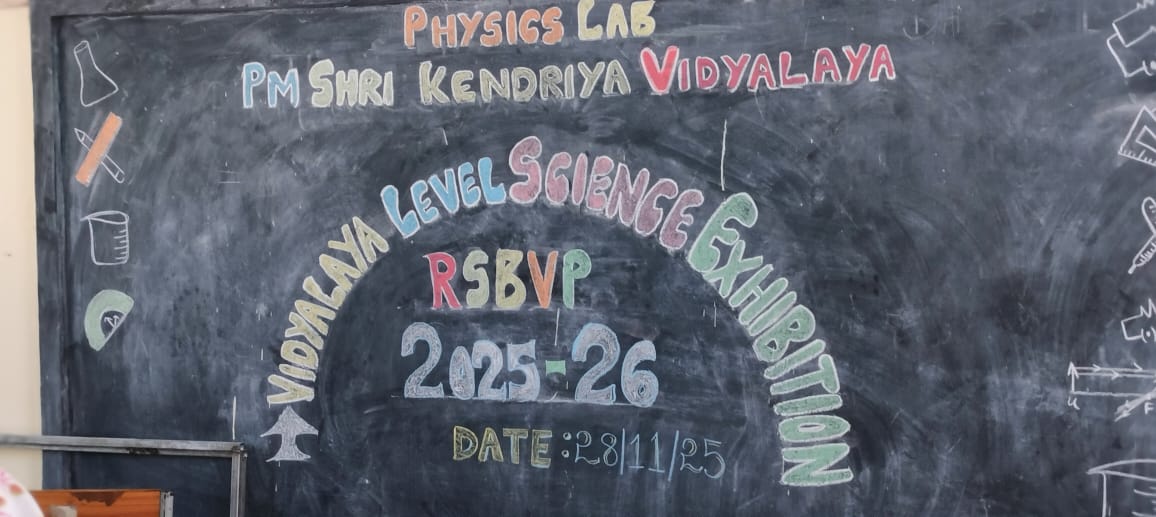 PHYSICS LAB
PM SHRI KENDRIYA VIDYALAYA
VIDYALAYA LEVEL SCIENCE EXHIBITION
RSBVP
2025-26
DATE:28/11/25